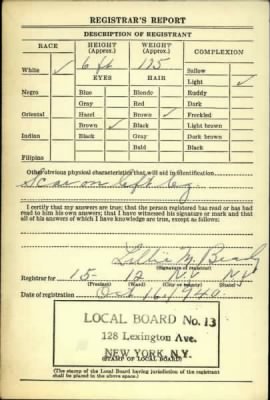 REGISTRAR'S REPORT
DESCRIPTION OF REGISTRANT
RACE HEIGHT (Approx.) WEIGHT (Approx.) COMPLEXION
6 ft 175 Sallow
White ✓ EYES HAIR Light ✓
Negro Blue Blonde Ruddy
Gray Red Dark
Oriental Hazel Brown ✓ Freckled
Brown ✓ Black Light brown
Indian Black Gray Dark brown
Bald Black
Filipino
Other obvious physical characteristics that will aid in identification
Scar on left leg
I certify that my answers are true; that the person registered has read or has had
read to him his own answers; that I have witnessed his signature or mark and that
all of his answers of which I have knowledge are true, except as follows:
Lillie M.
(Signature of registrar)
Registrar for 15 12 N.Y. N.Y.
(Precinct) (Ward) (City or county) (State)
Date of registration Oct 16, 1940
LOCAL BOARD No. 13
128 Lexington Ave.
NEW YORK, N.Y.
(STAMP OF LOCAL BOARD)
(The stamp of the Local Board having jurisdiction of the registrant
shall be placed in the above space.)